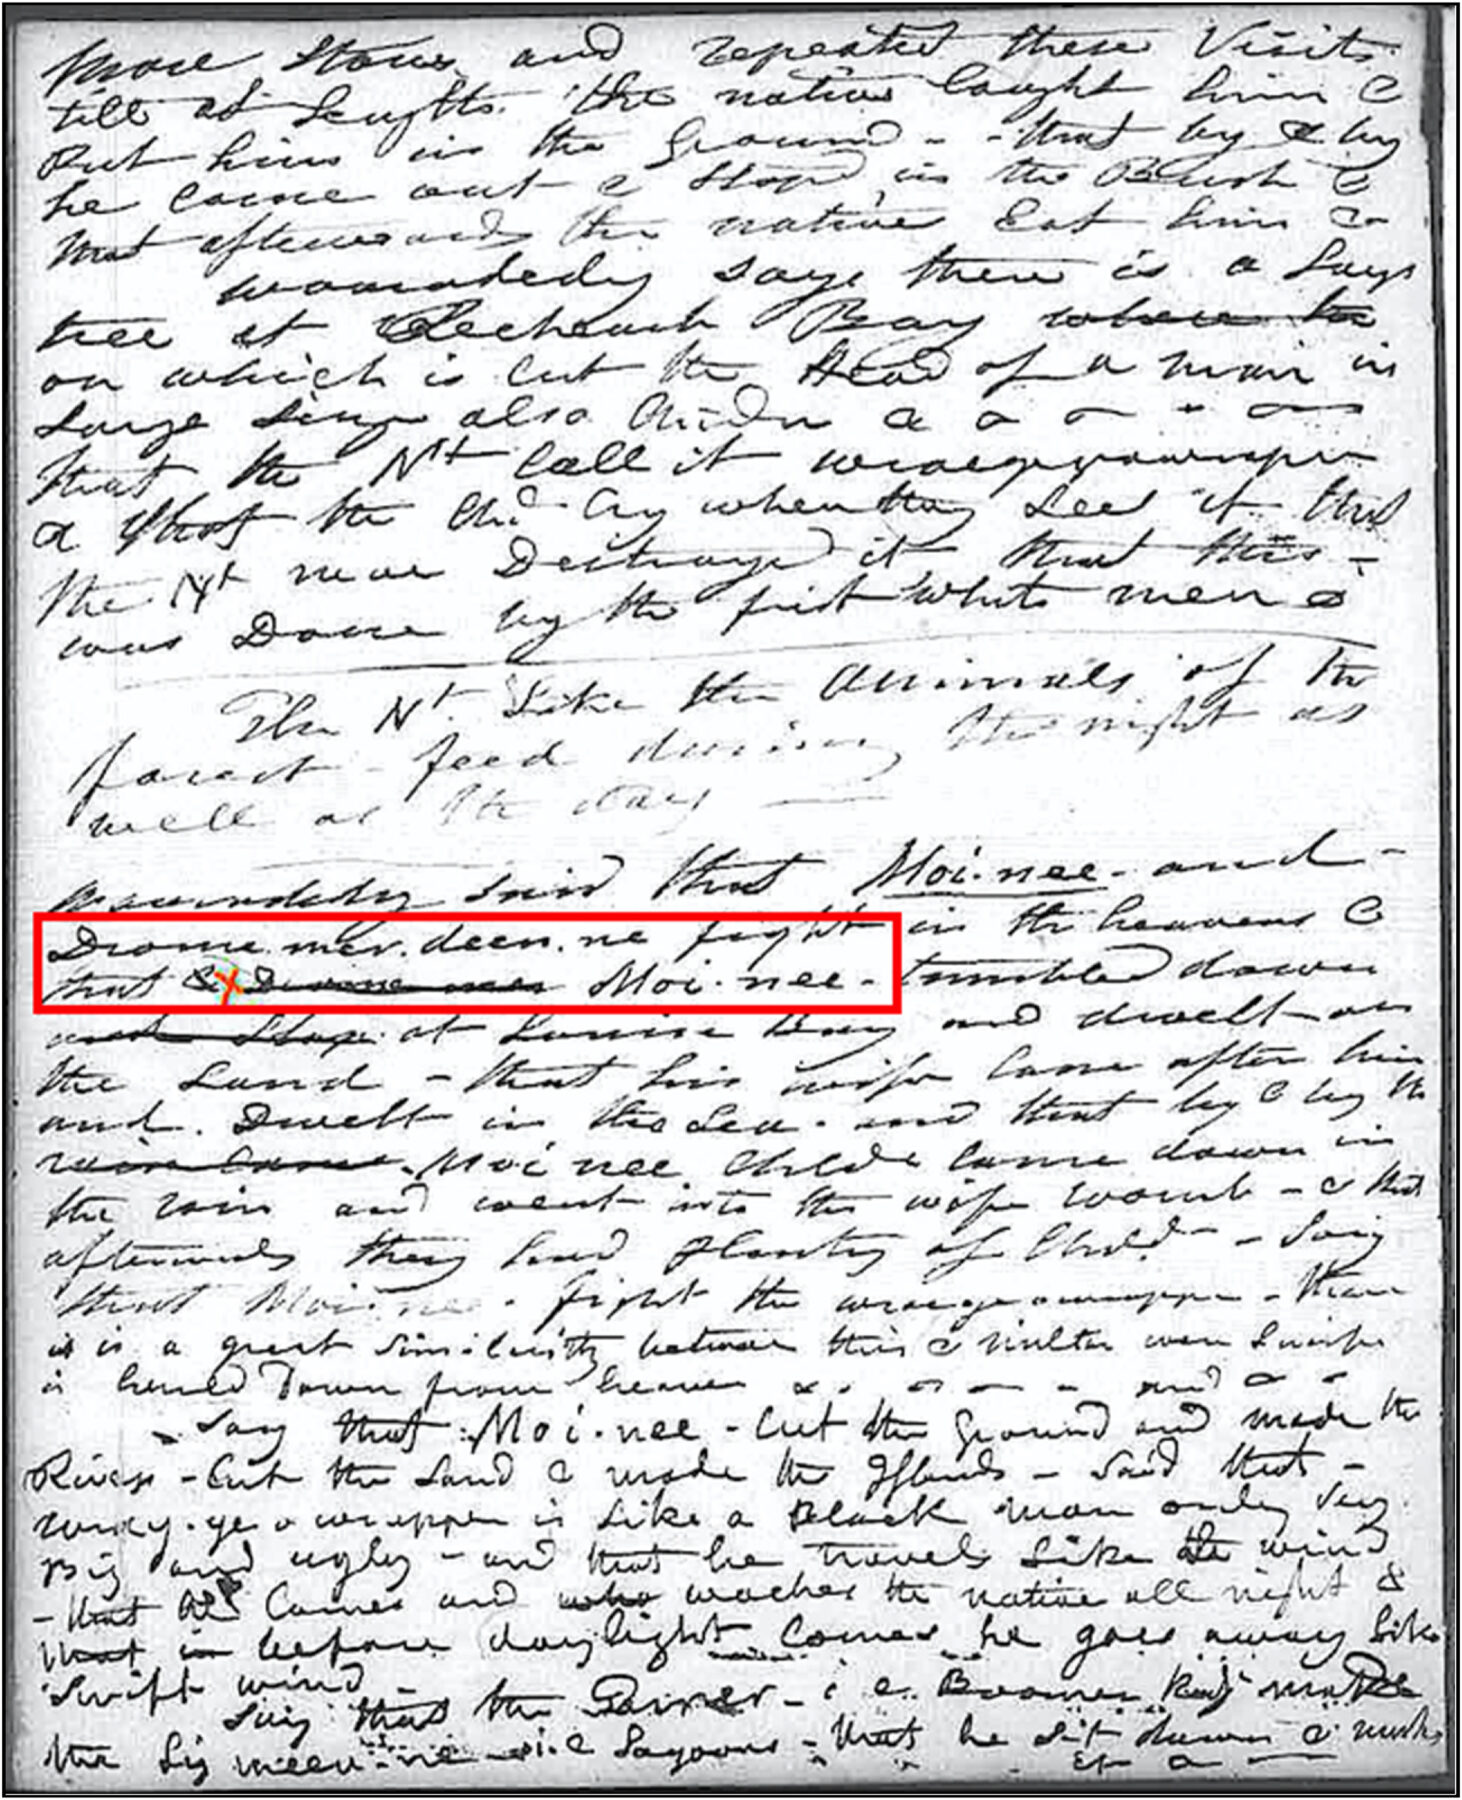 more Stones and repeated these Visits
till at length the native caught him &
Put him in the Ground - - that by & by
he came out & stop in the Bush &
that afterwards the native Eat him &c
woorrady says there is a large
tree at Recherch Bay where the
on which is cut the Head of a man in
large size also Childn
that the Nt. call it
a Ghost the Chd. Cry when they see it that
the Nt. have Destroyed it, that this -
was Done by the first white men
The Nt. Like the Animals of the
forest - feed during the night as
well as the day
woorrady said that Moi.nee - and -
Drome.mer.deen.ne fight in the heavens &
that & Drome mer Moi.nee - tumbled down
and Stop at Louisa Bay and dwelt on
the Land - that his wife came after him
and. Dwelt in the Sea - and that by & by the
rain came Moi nee Childn came down in
the rain and went into the wife womb - & that
afterwards they had plenty of Child. - Say
that Moi.nee - fight the - there
is a great similarity between this & where
is hurled Down from heaven and
Say that Moi.nee - cut the Ground and made the
Rivers - Cut the Land & made the Islands - Said that -
wray.ge o wrapper is Like a Black man only very
Big and ugly - and that he travels Like the wind
- that he Comes and who watches the native all night &
that in before daylight comes he goes away Like
swift wind -
Say that the - i e. Boomer Kang make
the - i.e Lagoons - that he sit down &